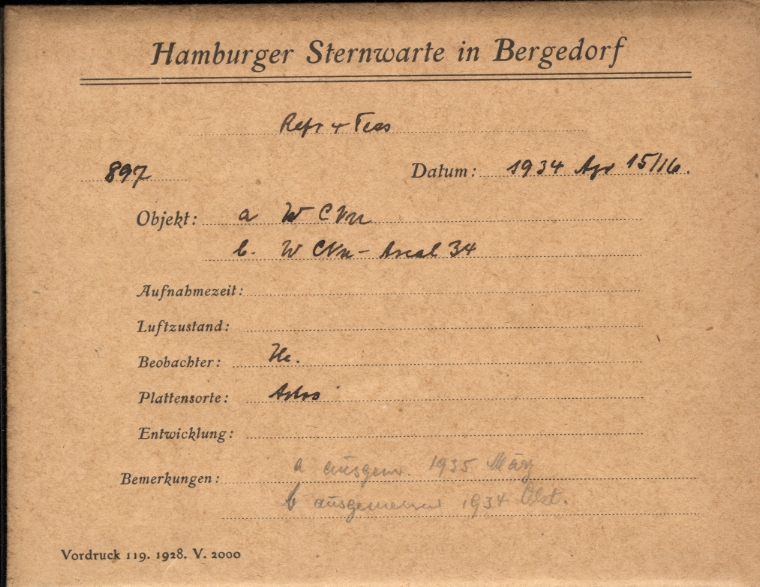 Hamburger Sternwarte in Bergedorf
Refr + Tess
897 Datum: 1934 Apr 15/16.
Objekt: a W CVn
b. W CVn – Areal 34
Aufnahmezeit:
Luftzustand:
Beobachter:
Plattensorte: Astro
Entwicklung:
Bemerkungen: a ausgem. 1935 März
b ausgemessen 1934 Okt.
Vordruck 119. 1928. V. 2000